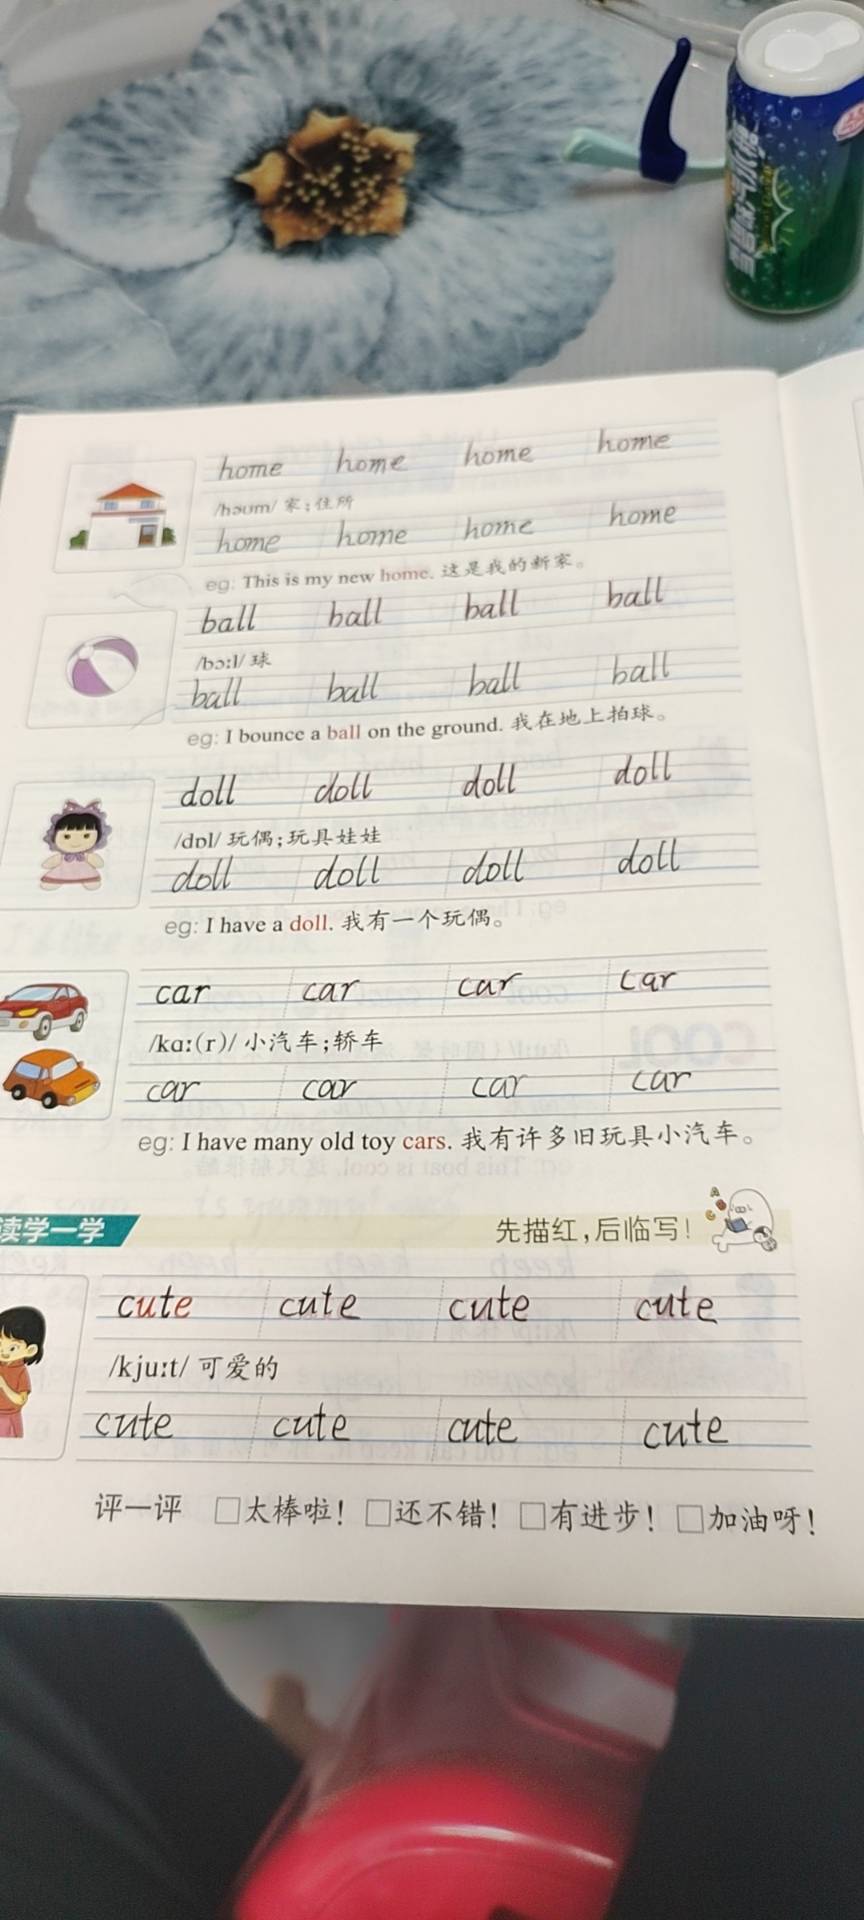 home home home home
/həʊm/ 家；住所
home home home home
eg: This is my new home. 这是我的新家。
ball ball ball ball
/bɔːl/ 球
ball ball ball ball
eg: I bounce a ball on the ground. 我在地上拍球。
doll doll doll doll
/dɒl/ 玩偶；玩具娃娃
doll doll doll doll
eg: I have a doll. 我有一个玩偶。
car car car car
/kɑː(r)/ 小汽车；轿车
car car car car
eg: I have many old toy cars. 我有许多旧玩具小汽车。
读学一学 先描红，后临写！
cute cute cute cute
/kjuːt/ 可爱的
cute cute cute cute
评一评 □太棒啦！ □还不错！ □有进步！ □加油呀！